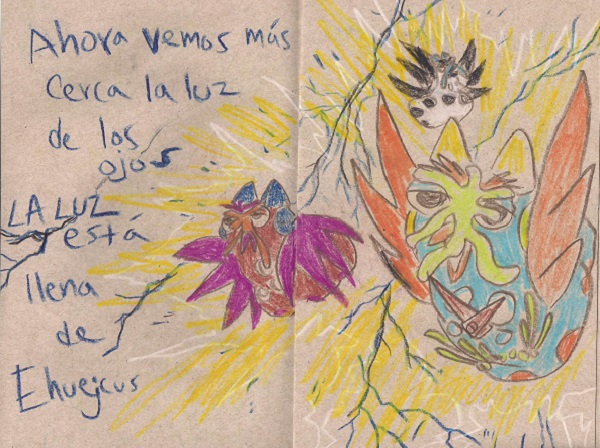 Ahora vemos más
cerca la luz
de los
ojos
LA LUZ
está
llena
de
Ehuejcus